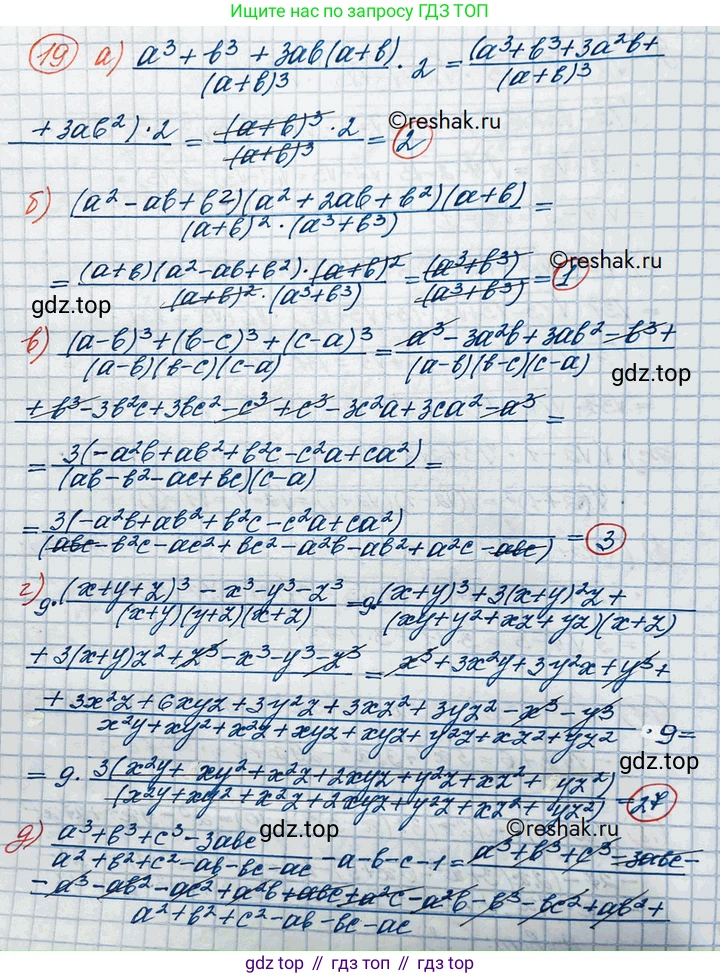 Ищите нас по запросу ГДЗ ТОП
19 а) (a³ + b³ + 3ab(a+b))/(a+b)³ · 2 = (a³+b³+3a²b+
+ 3ab²) · 2/(a+b)³ = (a+b)³ · 2/(a+b)³ = 2
©reshak.ru
б) (a² - ab + b²)(a² + 2ab + b²)(a+b)/((a+b)² · (a³+b³)) =
= (a+b)(a²-ab+b²) · (a+b)²/((a+b)² · (a³+b³)) = (a³+b³)/(a³+b³) = 1
©reshak.ru
gdz.top
в) ((a-b)³+(b-c)³+(c-a)³)/((a-b)(b-c)(c-a)) = (a³-3a²b+3ab²-b³+
+b³-3b²c+3bc²-c³+c³-3c²a+3ca²-a³)/((a-b)(b-c)(c-a)) =
gdz.top
= 3(-a²b+ab²+b²c-c²a+ca²)/((ab-b²-ac+bc)(c-a)) =
= 3(-a²b+ab²+b²c-c²a+ca²)/(abc-b²c-ac²+bc²-a²b-ab²+a²c-abc) = 3
г) 9·((x+y+z)³-x³-y³-z³)/((x+y)(y+z)(x+z)) = 9·((x+y)³+3(x+y)²z+
+3(x+y)z²+z³-x³-y³-z³)/((xy+y²+xz+yz)(x+z)) = (x³+3x²y+3y²x+y³+
+3x²z+6xyz+3y²z+3xz²+3yz²-x³-y³)/(x²y+xy²+x²z+xyz+xyz+y²z+xz²+yz²) · 9 =
gdz.top
= 9 · 3(x²y+xy²+x²z+2xyz+y²z+xz²+yz²)/(x²y+xy²+x²z+2xyz+y²z+xz²+yz²) = 27
gdz.top
©reshak.ru
д) (a³+b³+c³-3abc)/(a²+b²+c²-ab-bc-ac) - a-b-c-1 = (a³+b³+c³-3abc-
= -a³-ab²-ac²+a²b+abc+a²c-a²b-b³-bc²+ab²+
a²+b²+c²-ab-bc-ac
gdz top // гдз топ // gdz.top